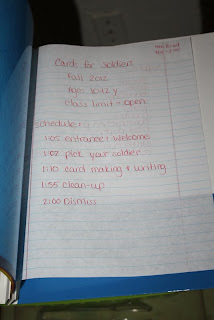 Cards for Soldiers
Fall 2012
Class limit - open
schedule:
1:05 entrance + welcome
1:07 pick your soldier
1:10 card making & writing
1:55 clean-up
2:00 Dismiss